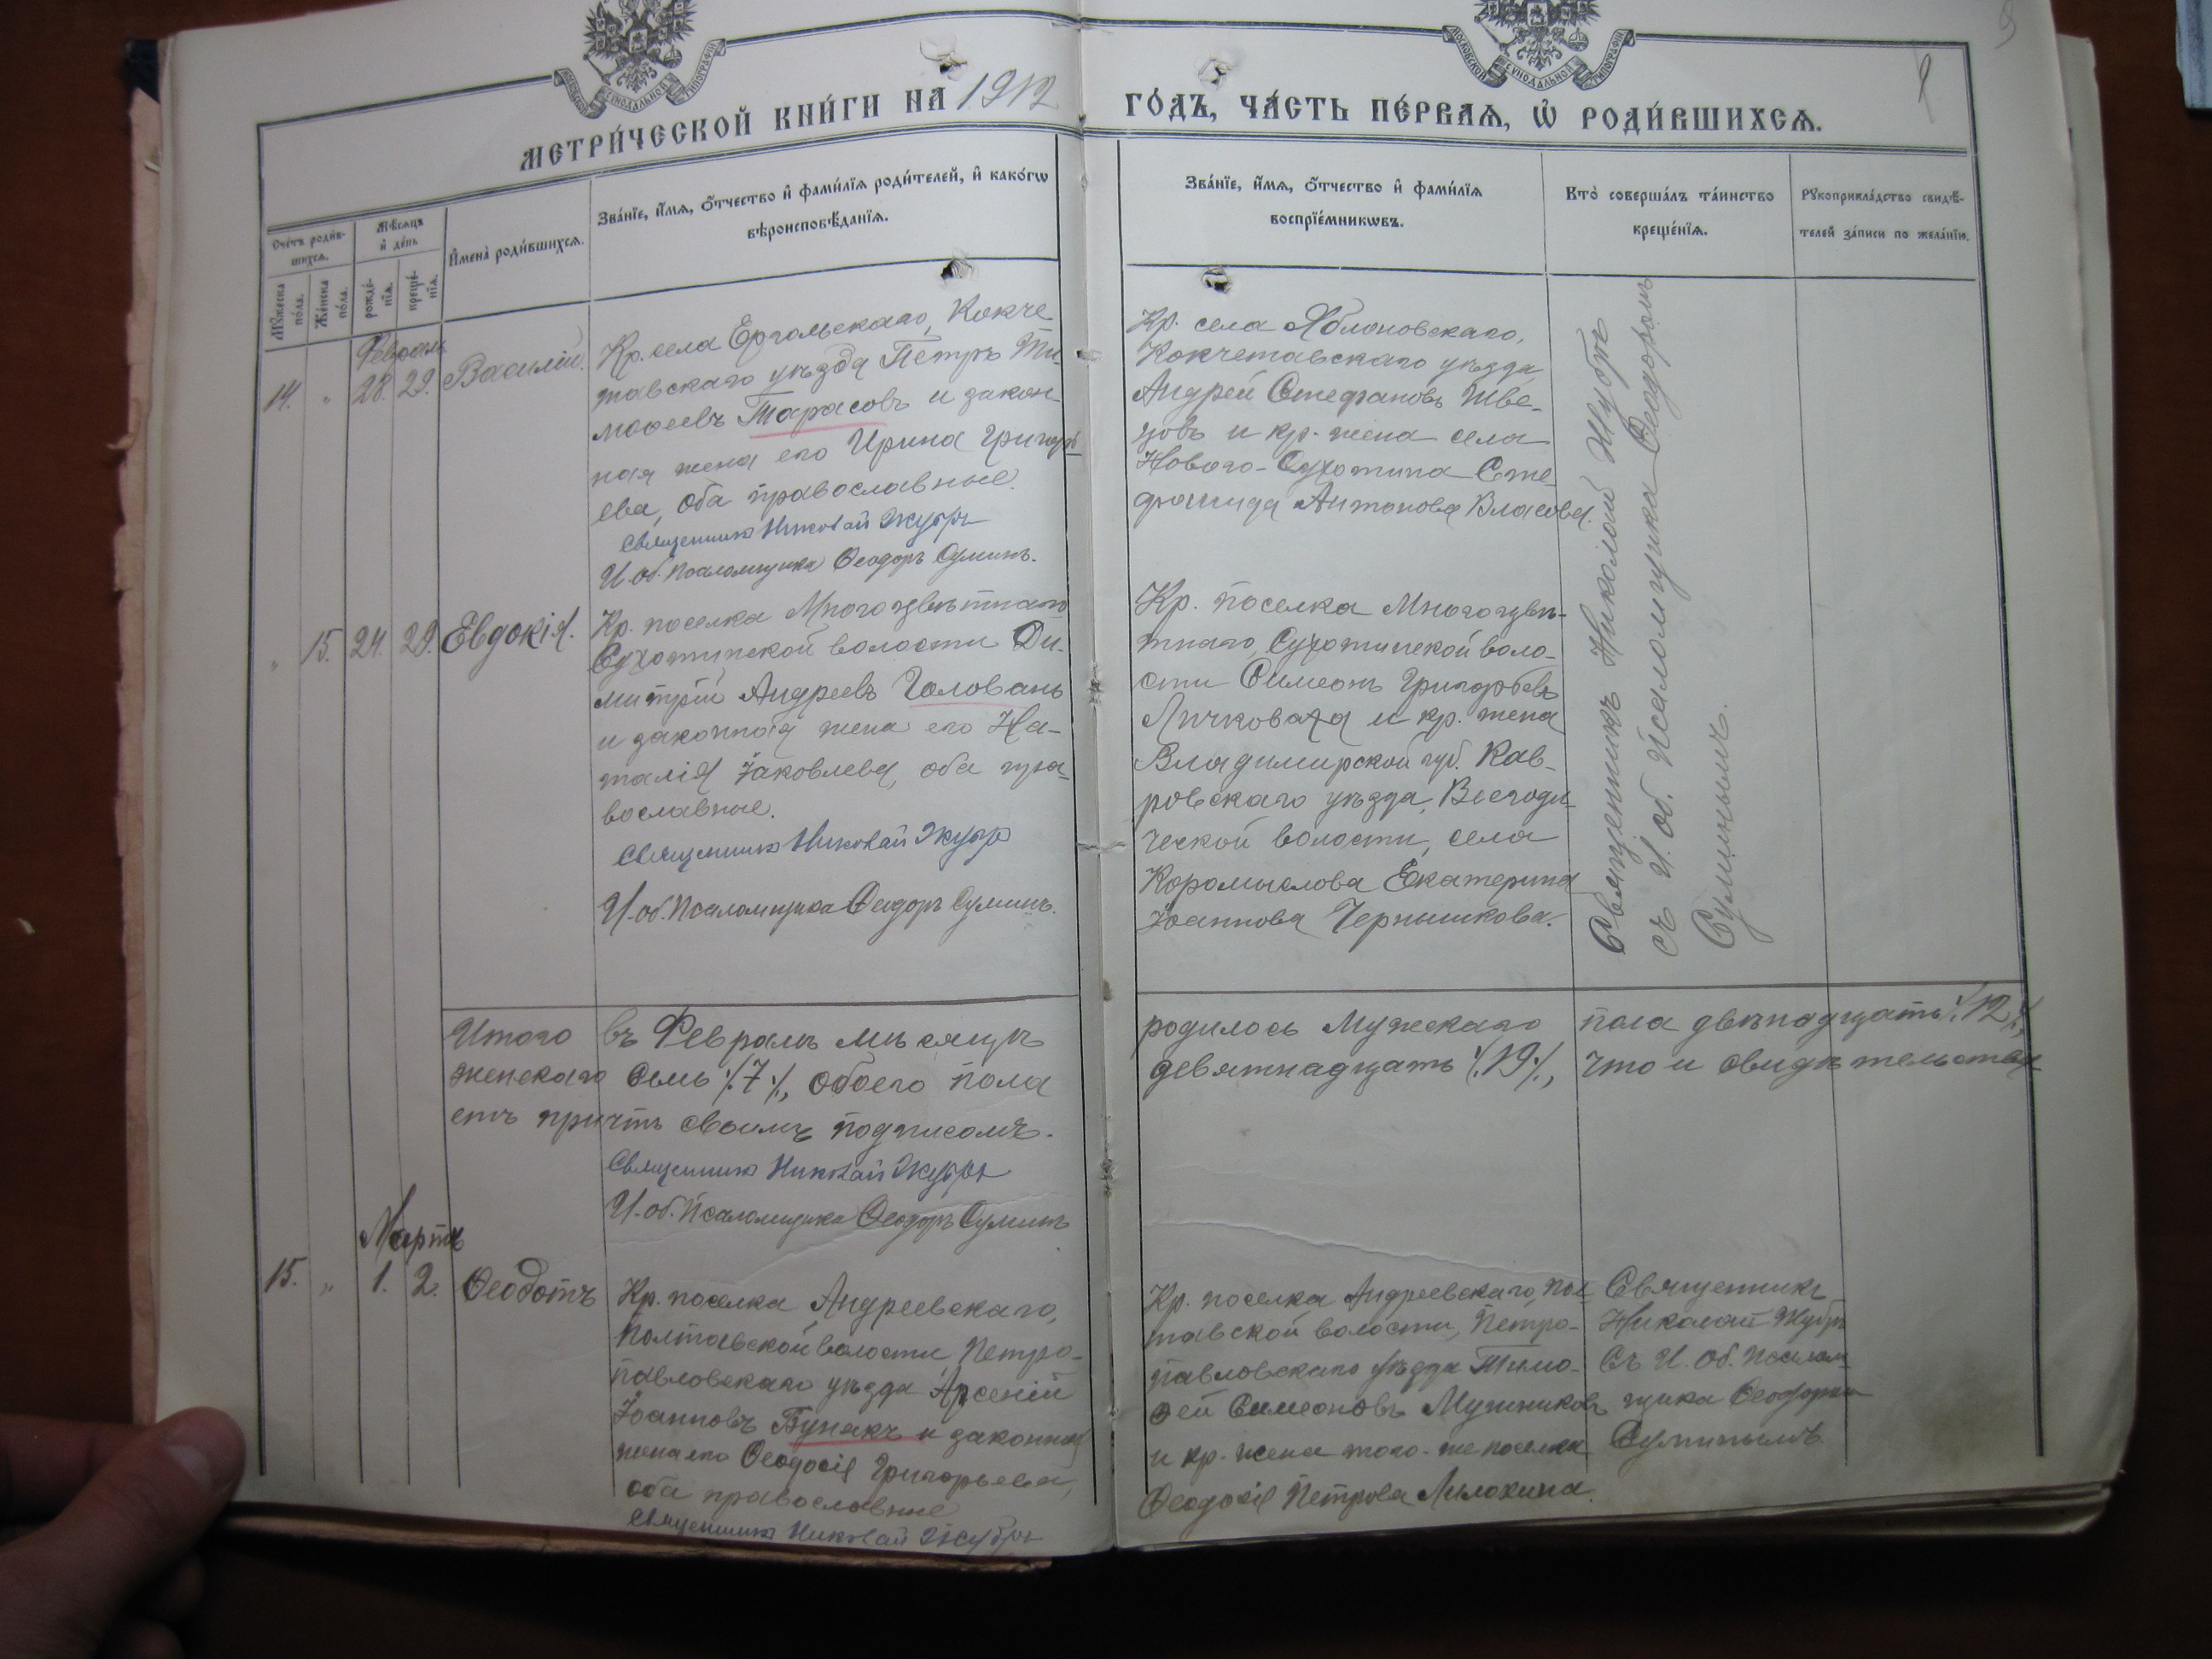 МОСКОВСКОЙ СѴНОДАЛЬНОЙ ТИПОГРАФІИ
МОСКОВСКОЙ СѴНОДАЛЬНОЙ ТИПОГРАФІИ
МЕТРИ́ЧЕСКОЙ КНИ́ГИ НА 1912
ГО́ДЪ, ЧА́СТЬ ПЕ́РВАЯ, Ѡ҆ РОДИ́ВШИХСЯ.
Сче́тъ роди́в-
шихся.
Мѣ́сяцъ
и҆ де́нь
Мꙋ́жеска
по́ла.
Же́нска
по́ла.
рожде́-
нїя.
креще́-
нїя.
И҆мена̀ роди́вшихся.
Зва́нїе, и҆́мя, ѻ҆́тчество и҆ фами́лїя роди́телей, и҆ како́гѡ
вѣроисповѣ́данїя.
Зва́нїе, и҆́мя, ѻ҆́тчество и҆ фами́лїя
воспрїе́мникѡвъ.
Кто̀ соверша́лъ та́инство
креще́нїя.
Рꙋкоприкла́дство свидѣ́-
телей за́писи по жела́нїю.
Февраль
14. " 28. 29. Василій.
Кр. села Ергольскаго, Кокче
тавскаго уѣзда Петръ Ти-
моѳеевъ Тарасовъ и закон-
ная жена его Ирина Григорь
ева, оба православные.
Священникъ Николай Жубръ
И. об. Псаломщика Ѳеодоръ Суминъ.
Кр. села Яблоновскаго,
Кокчетавскаго уѣзда
Андрей Стефановъ Шве-
цовъ и кр. жена села
Новаго-Сухотина Сте
фанида Антонова Власова.
Священникъ Николай Жубръ
съ И. об. Псаломщика Ѳеодоромъ
Суминымъ.
" 15. 24. 29. Евдокія.
Кр. поселка Многоцвѣтнаго
Сухотинской волости Ди-
митрій Андреевъ Головань
и законная жена его На-
талія Іаковлева, оба пра-
вославные.
Священникъ Николай Жубръ
И. об. Псаломщика Ѳеодоръ Суминъ.
Кр. поселка Многоцвѣ-
тнаго, Сухотинской воло-
сти Симеонъ Григорьевъ
Личковаха и кр. жена
Владимирской губ. Ков-
ровскаго уѣзда, Всегоди-
ческой волости, села
Коромыслова Екатерина
Іоаннова Чернышкова.
Итого въ Февралѣ мѣсяцѣ родилось мужескаго пола двѣнадцать /.12./,
женскаго семь /.7./, обоего пола девятнадцать /.19./, что и свидѣтельству-
етъ причтъ своимъ подписомъ.
Священникъ Николай Жубръ
И. об. Псаломщика Ѳеодоръ Суминъ
Мартъ
15. " 1. 2. Ѳеодотъ
Кр. поселка Андреевскаго,
Полтавской волости, Петро-
павловскаго уѣзда Арсеній
Іоанновъ Бунакъ и законная
жена его Ѳеодосія Григорьева,
оба православные
Священникъ Николай Жубръ
Кр. поселка Андреевскаго, Пол-
тавской волости, Петро-
павловскаго уѣзда Тимо-
ѳей Симеоновъ Мушниковъ
и кр. жена того-же поселка
Ѳеодосія Петрова Милохина.
Священникъ
Николай Жубръ
съ И. об. Псалом-
щика Ѳеодоромъ
Суминымъ